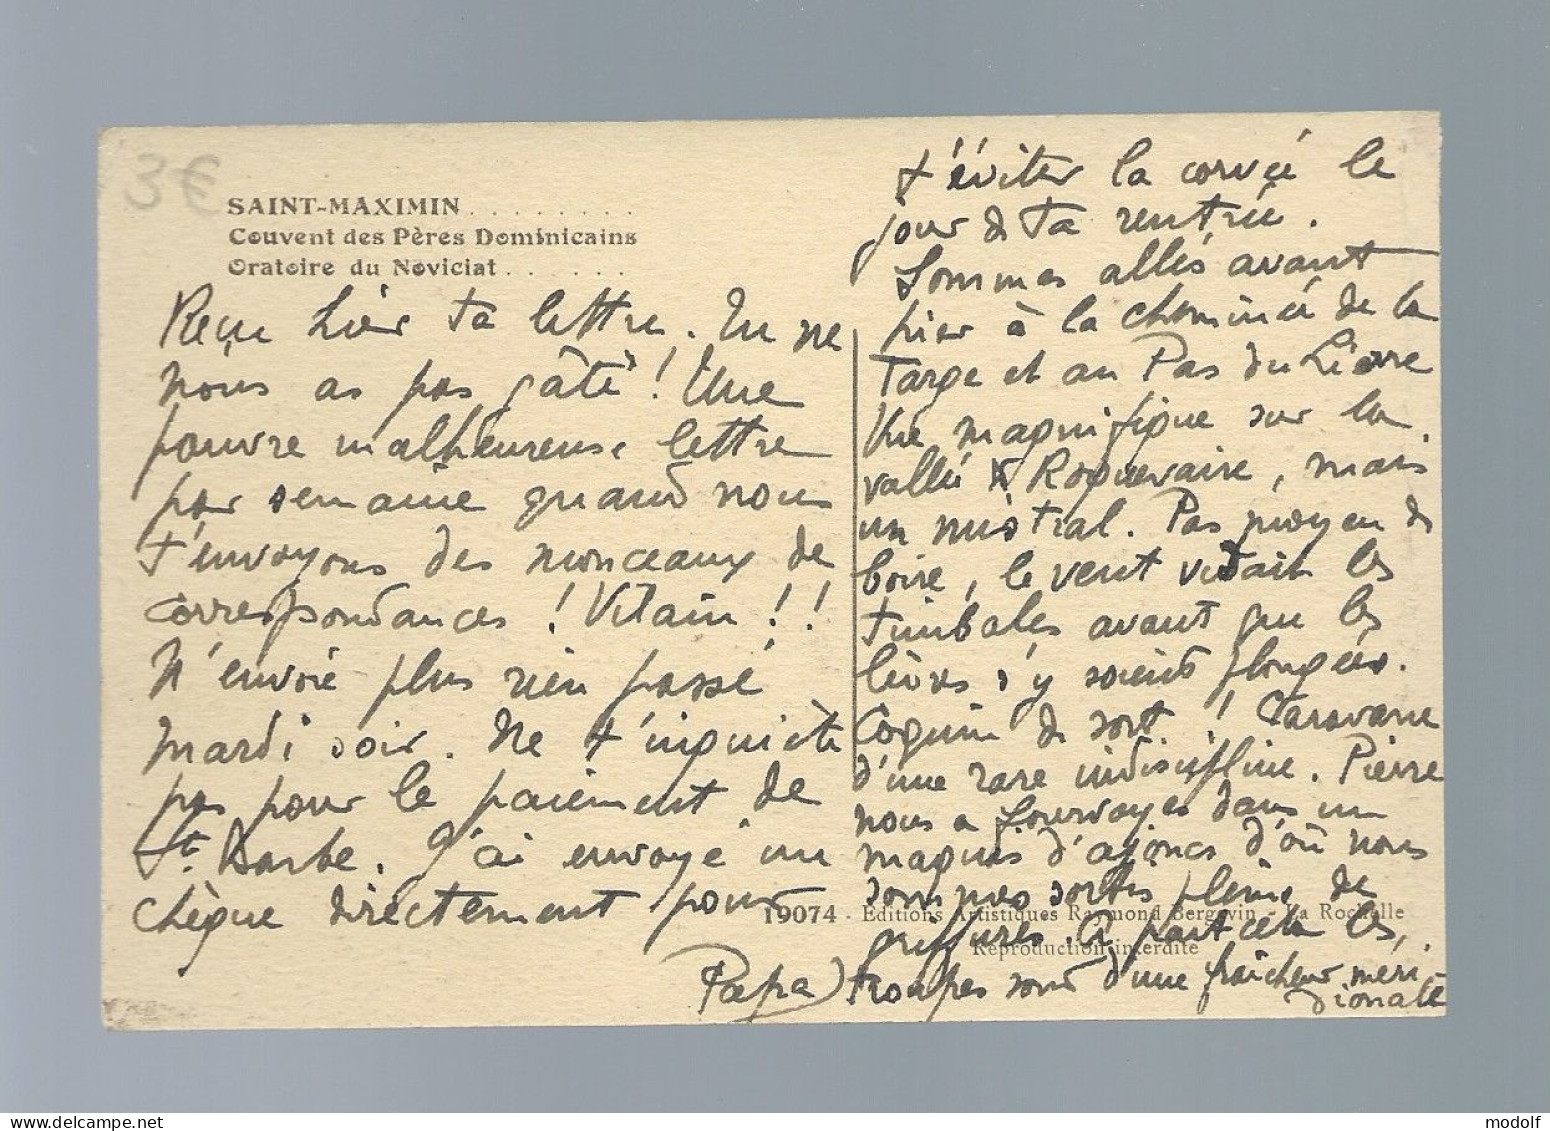 3€
SAINT-MAXIMIN . . . . . . . .
Couvent des Pères Dominicains
Oratoire du Noviciat . . . . . .
Reçu hier ta lettre. Tu ne
nous as pas gâté ! Une
pauvre malheureuse lettre
par semaine quand nous
t'envoyons des monceaux de
correspondances ! Vilain ! !
N'envoie plus rien passé
mardi soir. Ne t'inquiète
pas pour le paiement de
St. Barbe. J'ai envoyé un
chèque directement pour
t'éviter la corvée le
jour de ta rentrée.
Sommes allés avant
hier à la cheminée de la
Targe et au Pas du Lièvre
Vue magnifique sur la
vallée de Roquevaire, mais
un mistral. Pas moyen de
boire, le vent vidait les
timbales avant que les
lèvres s'y soient plongées.
Coquin de sort ! Caravane
d'une rare indiscipline. Pierre
nous a fourvoyés dans un
maquis d'ajoncs d'où nous
sommes sortis pleins de
griffures. A part cela les
troupes sont d'une fraîcheur méri
dionale
Papa
19074 - Editions Artistiques Raymond Bergevin - La Rochelle
Reproduction interdite
Delcampe.net
modolf